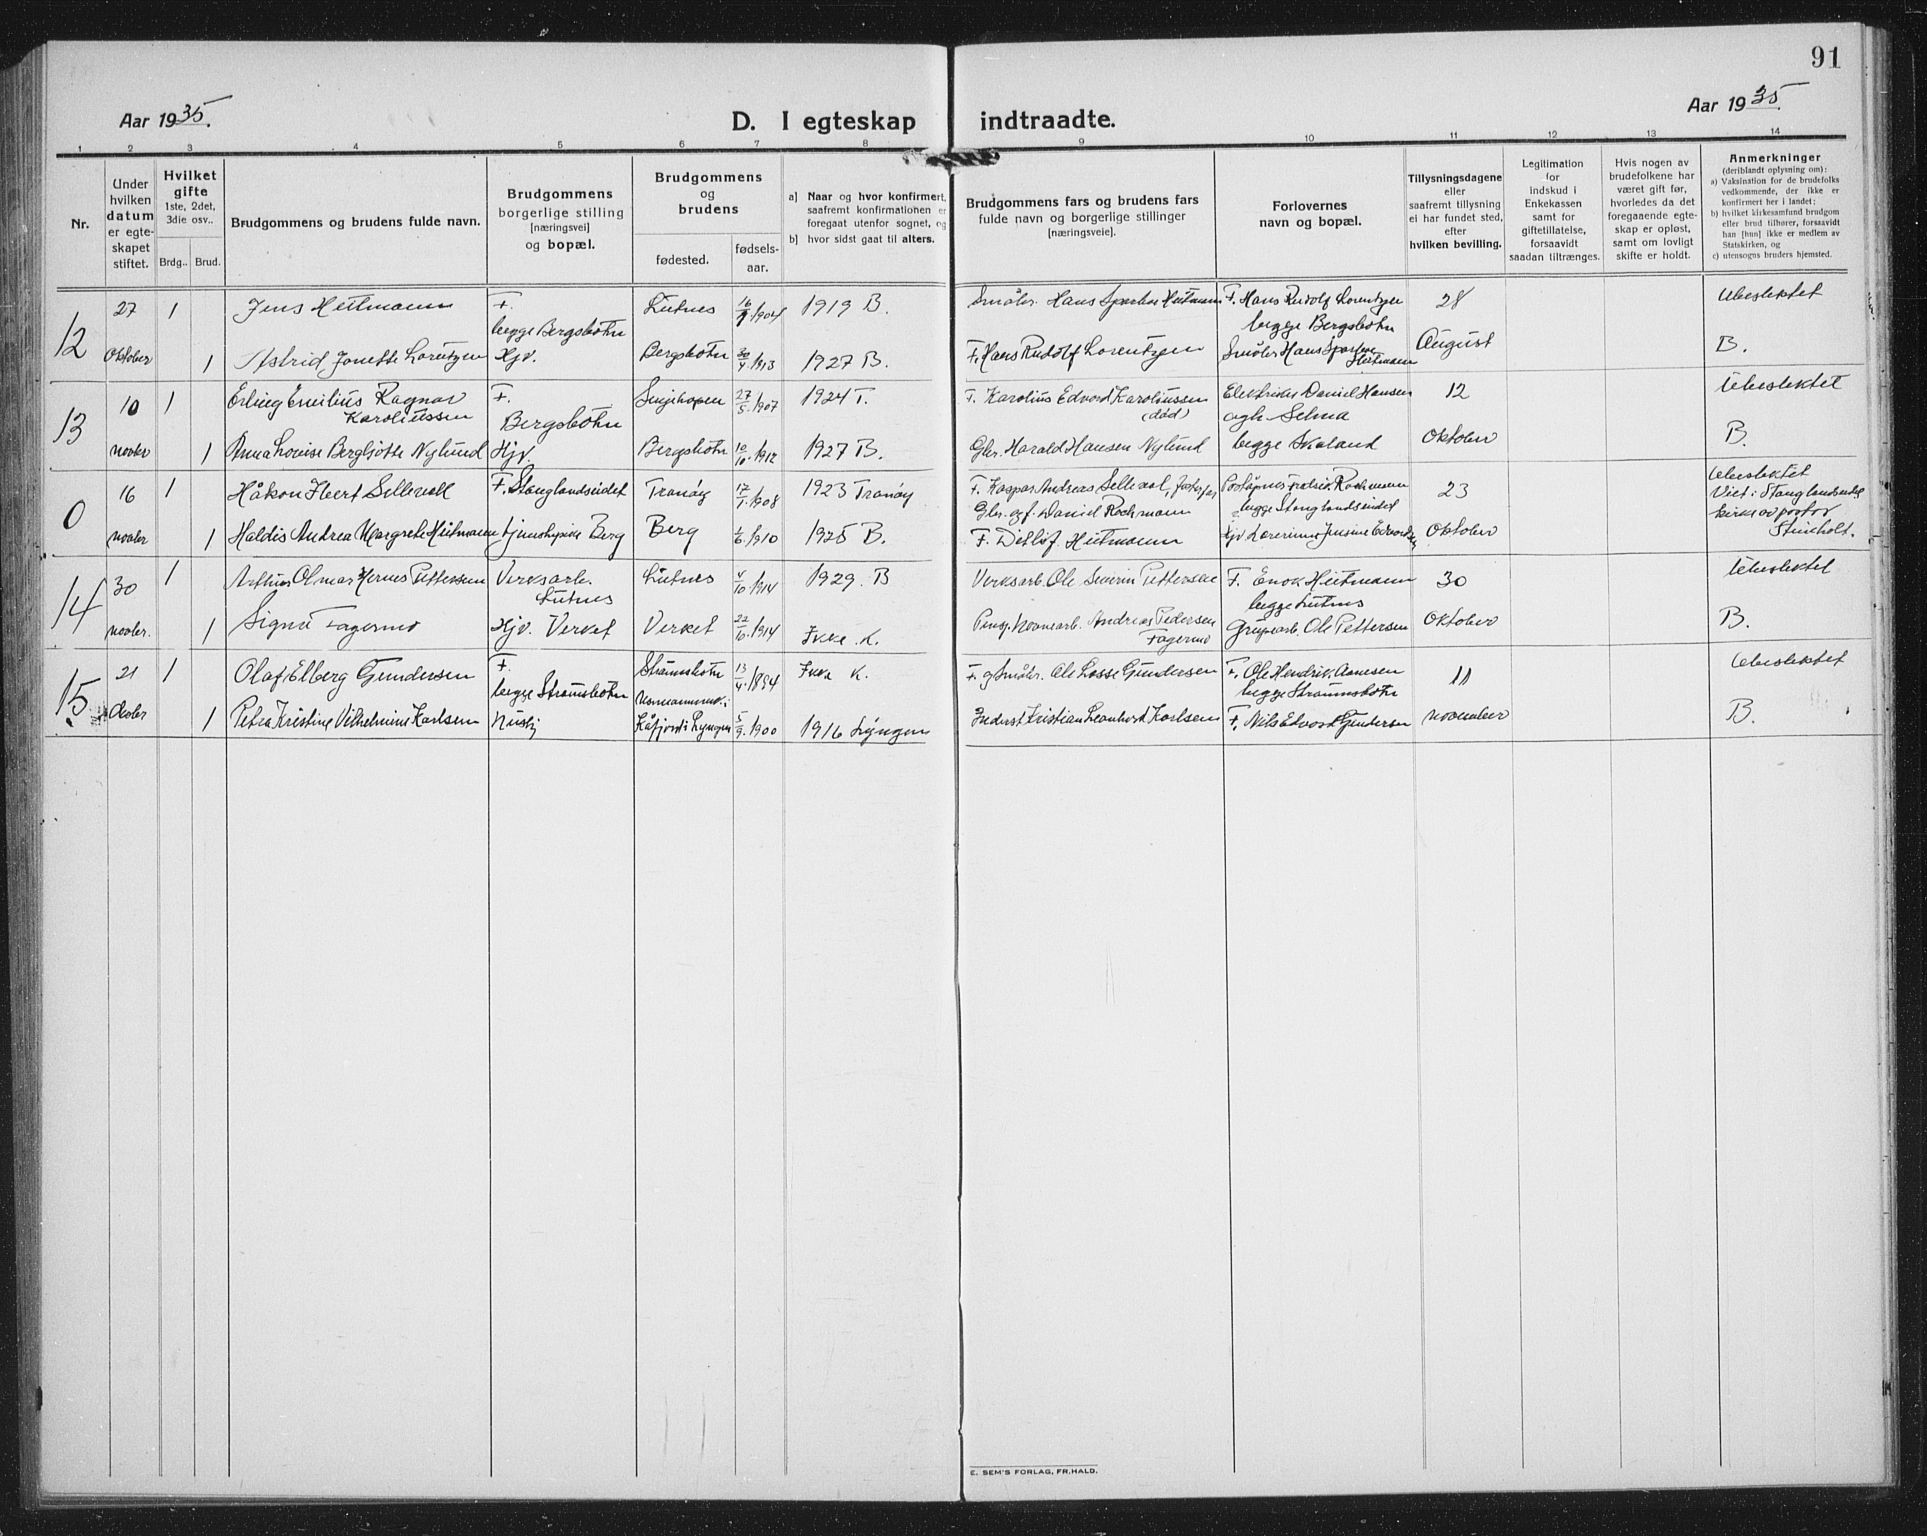 91
Aar 1935.
D. I egteskap indtraadte.
Aar 1935.
1 2 3 4 5 6 7 8 9 10 11 12 13 14
Nr.
Under hvilken datum er egteskapet stiftet.
Hvilket gifte
1ste, 2det, 3die osv..
Brdg.. Brud.
Brudgommens og brudens fulde navn.
Brudgommens borgerlige stilling [næringsvei] og bopæl.
Brudgommens og brudens
fødested. fødsels-aar.
a) Naar og hvor konfirmert, saafremt konfirmationen er foregaat utenfor sognet, og
b) hvor sidst gaat til alters.
Brudgommens fars og brudens fars fulde navn og borgerlige stillinger [næringsveie].
Forlovernes navn og bopæl.
Tillysningsdagene eller saafremt tillysning ei har fundet sted, efter hvilken bevilling.
Legitimation for indskud i Enkekassen samt for giftetillatelse, forsaavidt saadan tiltrænges.
Hvis nogen av brudefolkene har været gift før, hvorledes da det foregaaende egteskap er opløst, samt om lovligt skifte er holdt.
Anmerkninger
(deriblandt oplysning om):
a) Vaksination for de brudefolks vedkommende, der ikke er konfirmert her i landet;
b) hvilket kirkesamfund brudgom eller brud tilhører, forsaavidt han [hun] ikke er medlem av Statskirken, og
c) utensogns bruders hjemsted.
12 27 1 Jens Heitmann F. Lutnes 16/9 1904 1919 B. Småbr. Hans Sparboe Heitmann F. Hans Rudolf Lorentzen 28 Ubeslektet
begge Bergsbotn begge Bergsbotn
Oktober 1 Astrid Jonette Lorentzen Hjv. Bergsbotn 30/4 1913 1927 B. F. Hans Rudolf Lorentzen Småbr Hans Sparboe Heitmann August B.
13 10 1 Erling Emilius Ragnar Karoliussen F. 27/5 1907 1924 T. F. Karolius Edvard Karoliussen (død) Elektriker Daniel Hansen 12 Ubeslektet
Bergsbotn ogh Selma
novbr 1 Anna Lovise Bergljotte Nylund Hjv. Bergsbotn 10/10 1912 1927 B. Gbr. Harald Hansen Nylund begge Skaland Oktober B.
0 16 1 Håkon Ibert Sellevoll F. Stonglandseidet Tranøy 17/1 1908 1923 Tranøy F. Kaspar Andreas Sellevol, fosterfar Rochmann 23 Ubeslektet
Gbr. og f. Daniel Rochmann begge Stonglandseidet Viet i Stonglandseidet kirke av pastor Steinholt.
novbr 1 Haldis Andrea Margrete Heitmann Berg Berg 1/6 1910 1925 B. F. Detlof Heitmann Oktober
14 30 1 Arthur Olmar Hernes Pettersen Verksarb. Lutnes Lutnes 4/10 1914 1929. B Verksarb. Ole Severin Pettersen F. Enok Heitmann 30 Ubeslektet
begge Lutnes
novbr. 1 Signe Fagermo Hjv. Verket Verket 22/6 1914 Ikke K. Andreas Pedersen Fagermo Grubearb. Ole Pettersen Oktober B.
15. 21 1 Olaf Elberg Gundersen F. Straumsbotn 13/4 1894 Ikke K. F. og Småbr. Ole Lasse Gundersen F. Ole Hendrik Arnesen 11 Ubeslektet
begge Straumsbotn begge Straumsbotn
Desbr 1 Petra Kristine Vilhelmine Karlsen Husbj Kåfjord i Lyngen 5/9 1900 1916 Lyngen Inderst Kristian Leonhard Karlsen F. Nils Edvard Gundersen november B.
E. SEM'S FORLAG, FR.HALD.